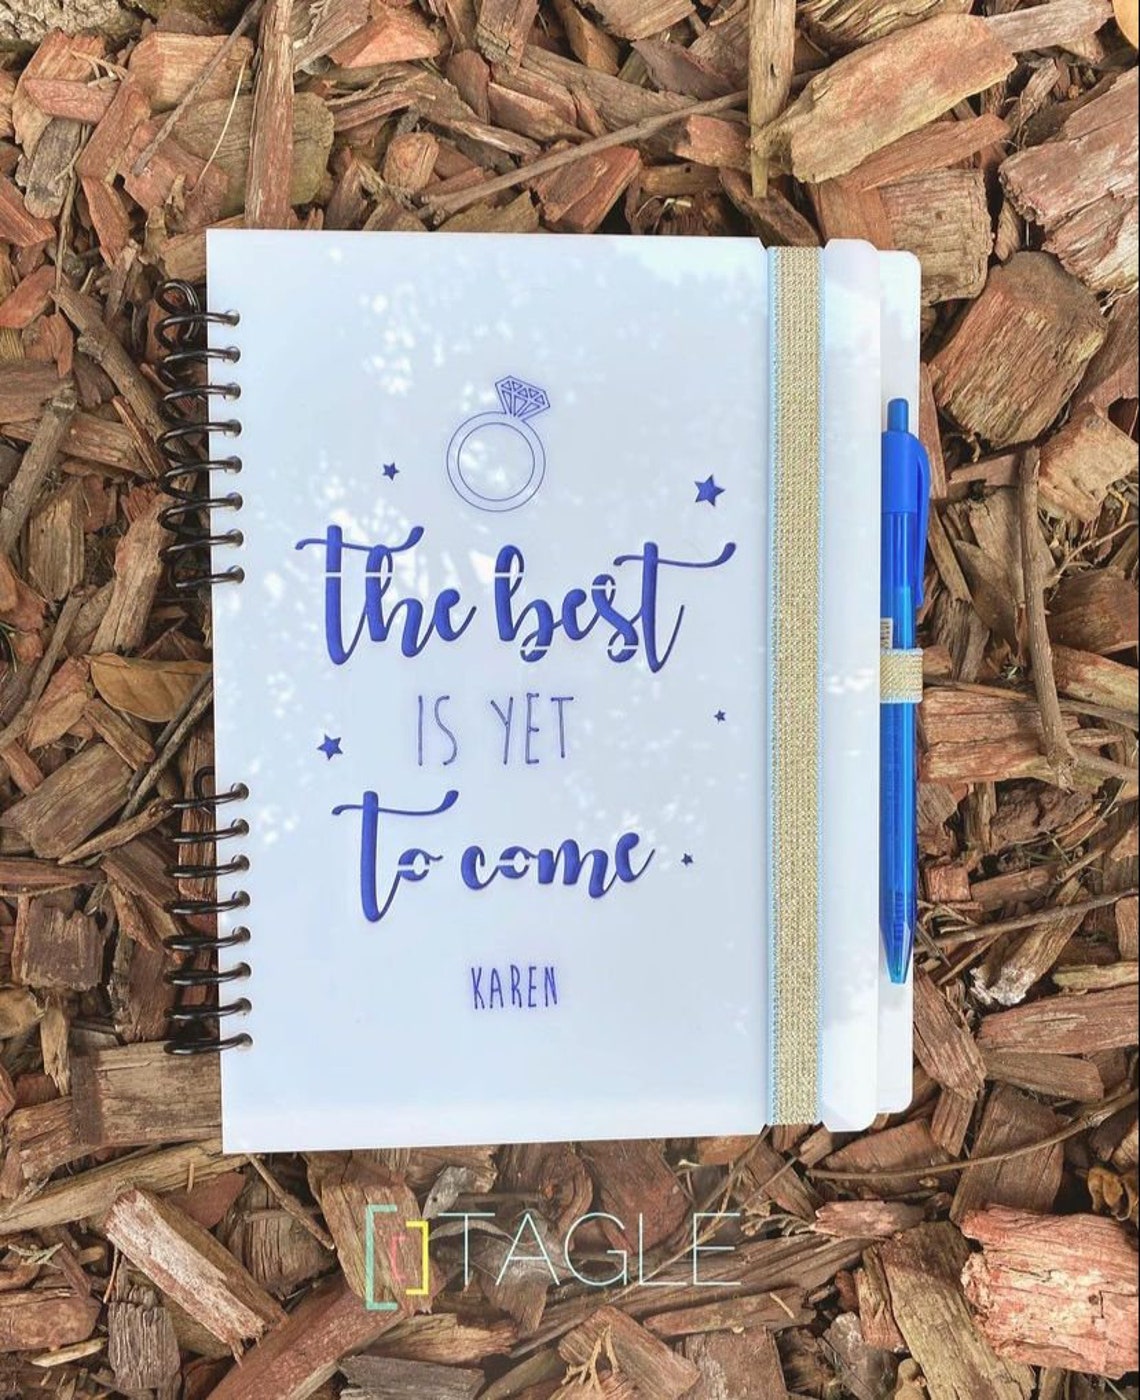 the best
IS YET
to come
KAREN
TAGLE